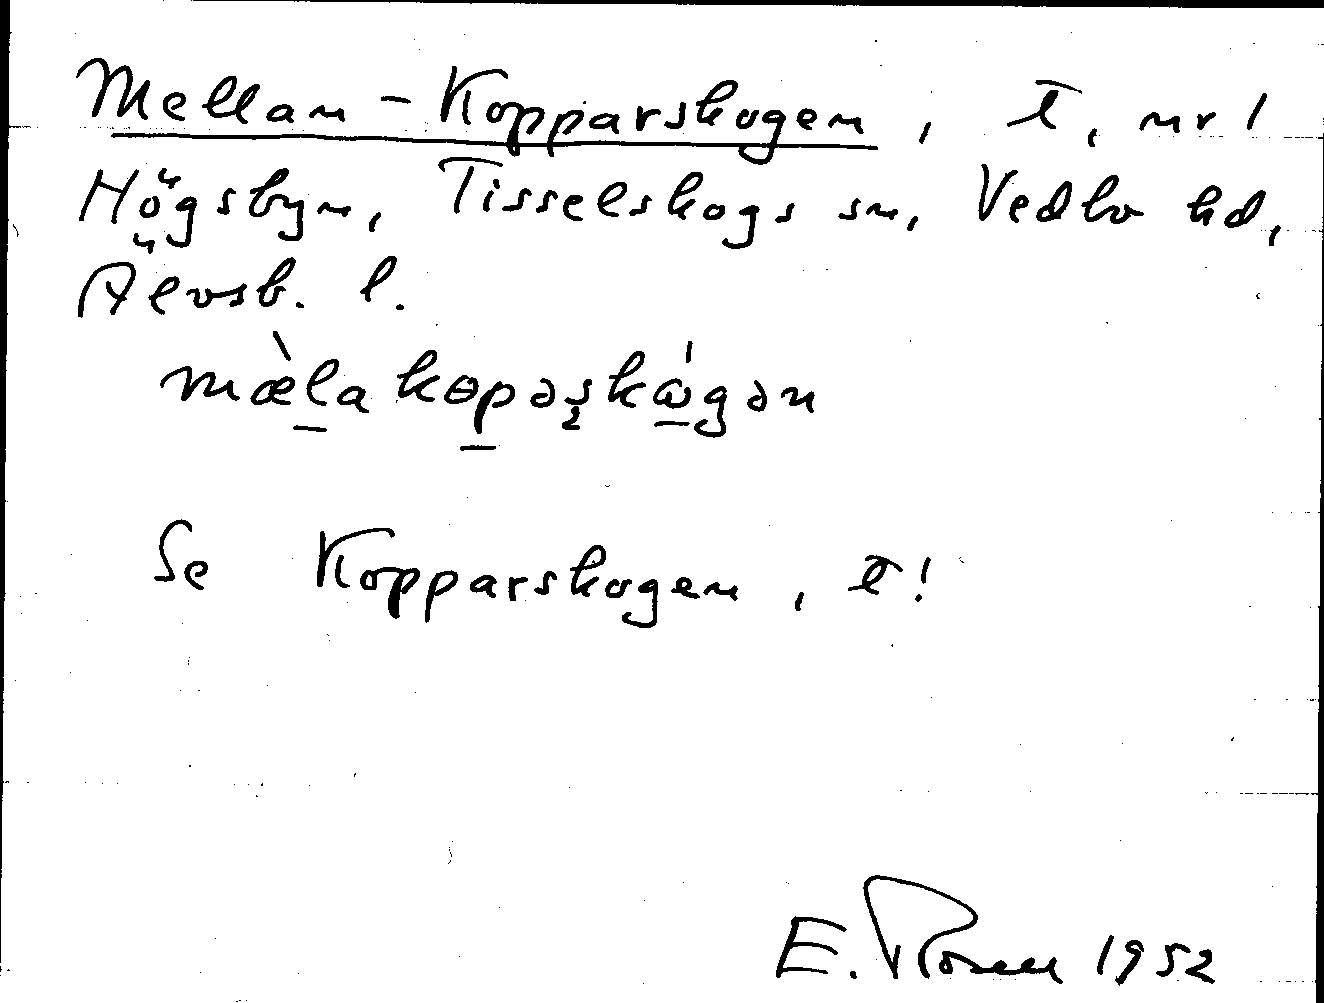 Mellan-Kopparskogen, t, nr 1
Högsbyn, Tisselskogs sn, Vedbo hd,
Älvsb. l.
mæ̀la kɵpəʂkɷ́gən
Se Kopparskogen, t!
E. Rosen 1952